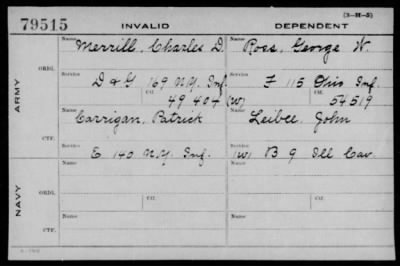 (3-H-5)
79515 INVALID DEPENDENT
ARMY
ORIG.
Name Merrill, Charles D.
Service D & G 169 N.Y. Inf.
CO. 49 404
Name Ross, George W.
Service F 115 Ohio Inf.
(W) CO. 54519
CTF.
Name Carrigan, Patrick
E 140 N.Y. Inf.
Name Leibee, John
(W) B 9 Ill Cav.
NAVY
ORIG.
Name
Service
CO.
Name
Service
CO.
CTF.
Name
Name